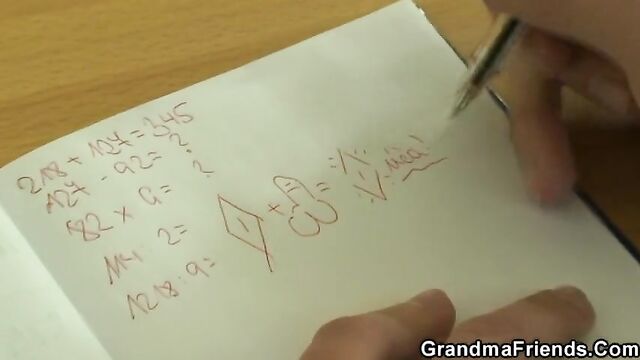 218 + 127 = 345
127 - 92 = ?
82 x 9 = ?
114 : 2 =
1218 : 9 =
+ =
GrandmaFriends.Com